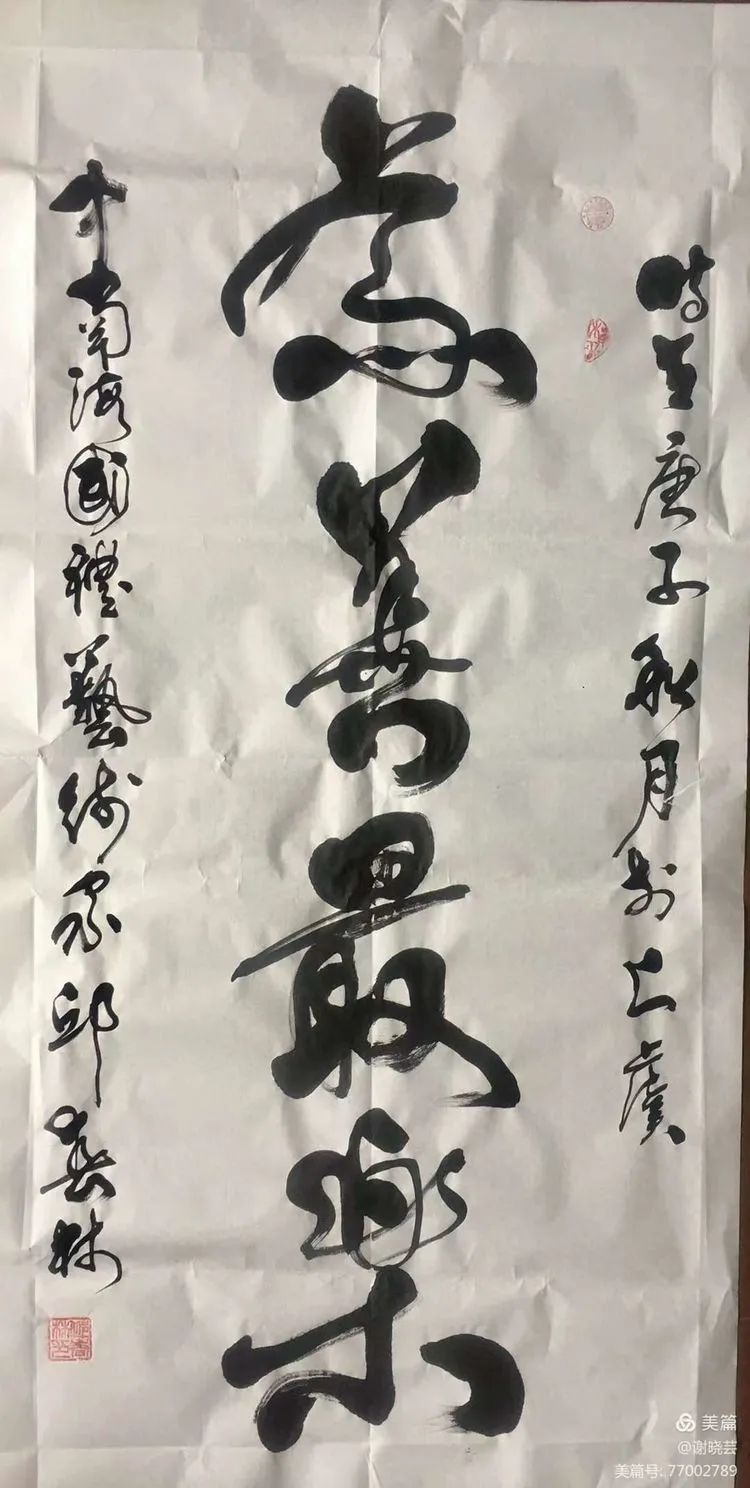 時在庚子秋月於上虞
為善最樂
中南海國禮藝術家邱春林
美篇
@谢晓芸
美篇号: 77002789